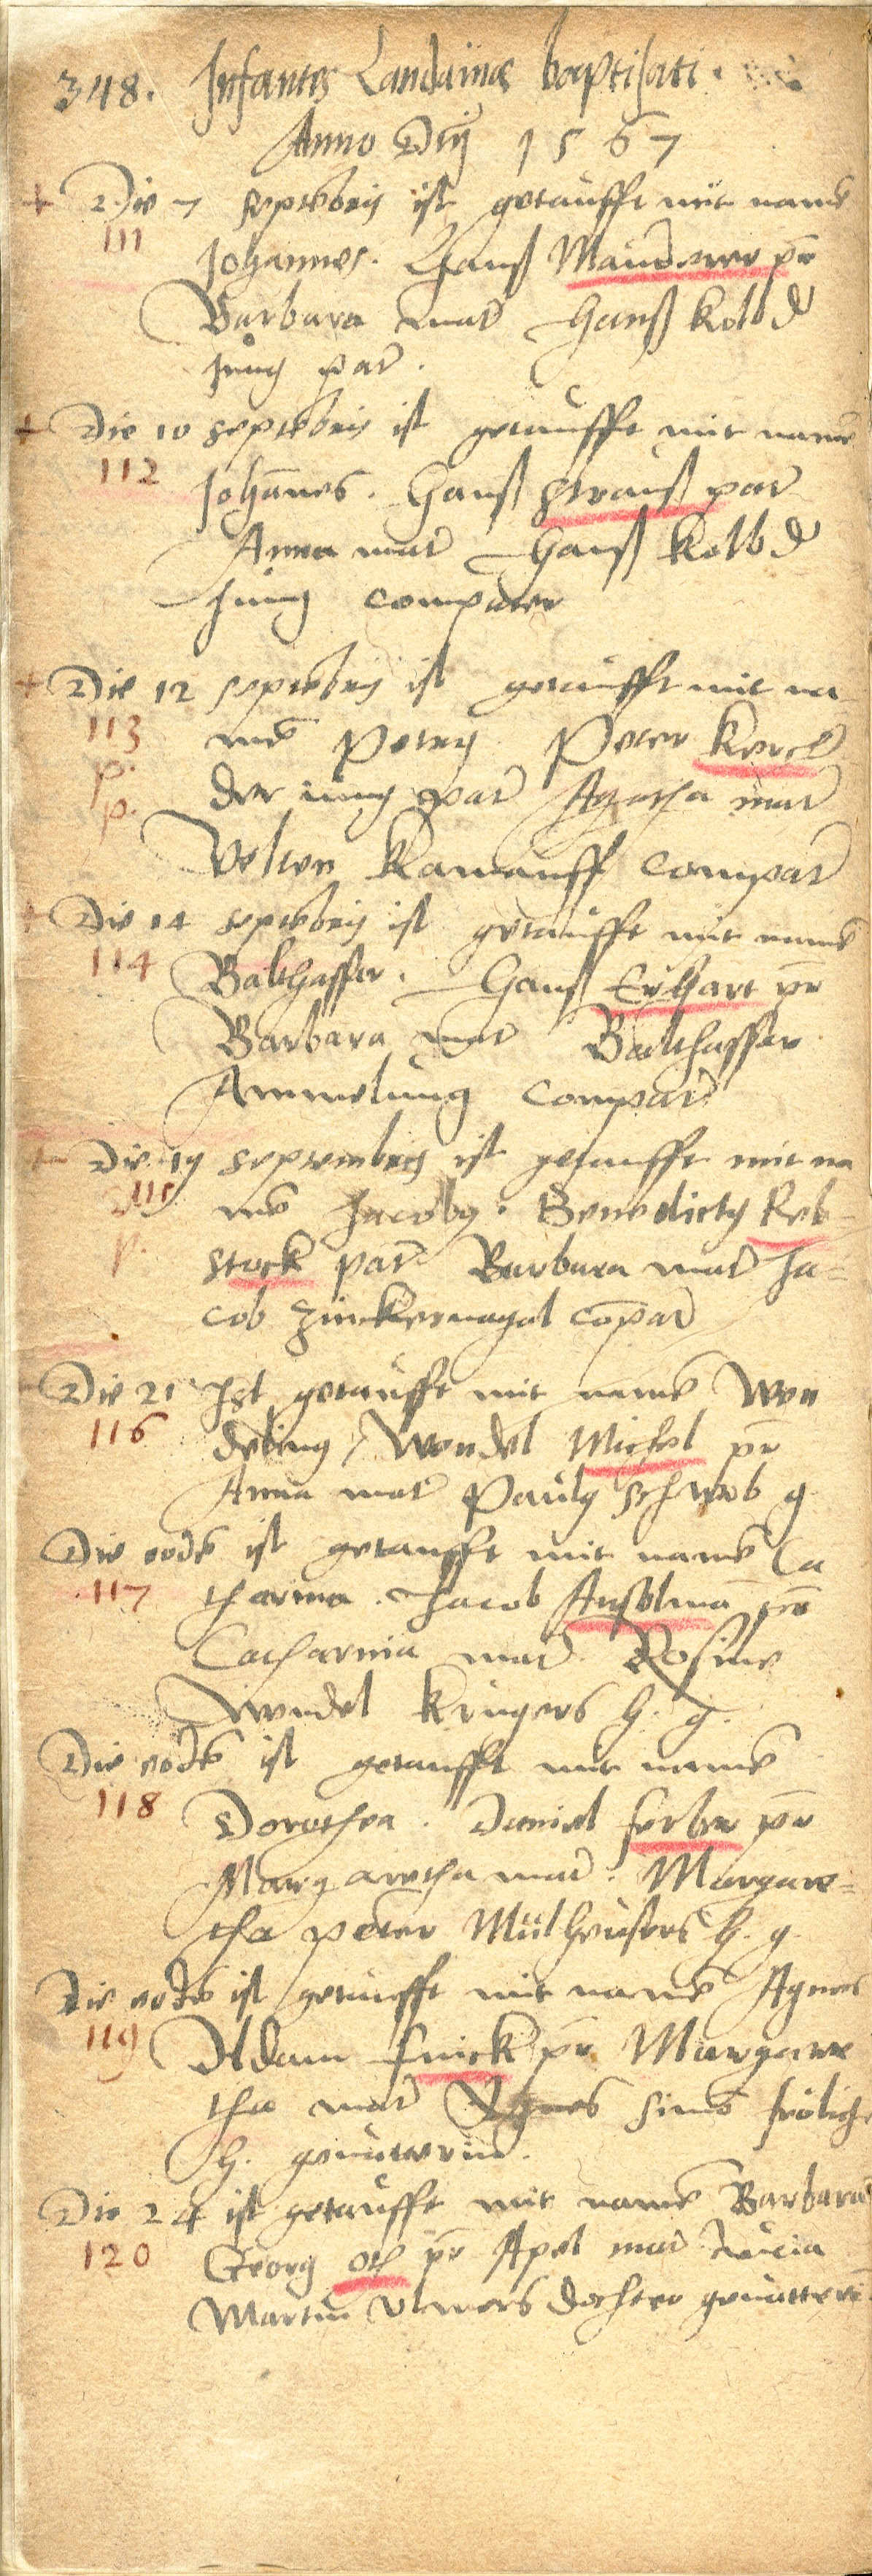 348. Infantes Landavinae baptisati.
Anno Dnj 1567
+ Die 7 septēbris ist getaufft mit namē
111 Johannes. Hanß Maurer pr̄
Barbara mat̄ Hanß Kolb d
jung pat̄.
+ Die 10 septēbris ist getaufft mit namē
112 Johān̄es. Hanß Strauß pat̄
Anna mat̄ Hanß Kolb d
Jung compater
+ Die 12 septēbris ist getaufft mit na-
113 mē Petrus Peter Kerch
p. der jung pat̄ Agatha mat̄
p. Velten Kamauff compat̄
+ Die 14 septēbris ist getaufft mit namē
114 Balthasser. Hanß Erhart pr̄
Barbara mat̄ Balthasser
Ammelung compat̄
+ Die 19 septembris ist getaufft mit na
115 mē Jacobus. Benedictus Reb-
p. stock pat̄ Barbara mat̄ Ja=
cob Zinkernagel cōpat̄
Die 21 Ist getaufft mit namē Wen
116 delinus, Wendel Michel pr̄
Anna mat̄ Paulus Schwob g
Die eodē ist getaufft mit namē Ca
117 tharina. Jacob Anßelmā pr̄
Catharina mat̄. Rosine
Wendel Krügers h. g.
Die eodē ist getaufft mit namē
118 Dorothea. Daniel Ferber pr̄
Margaretha mat̄. Margare=
tha Peter Mülheusers h. g.
Die eodē ist getaufft mit namē Agnes
119 Adam Finck pr̄ Margare
tha mat̄ Agnes Simō frölich
h. gevatterin.
Die 24 ist getaufft mit namē Barbara
120 Georg Oth pr̄ Apel mat̄ Lucia
Martin Ulmers dochter gevatterī